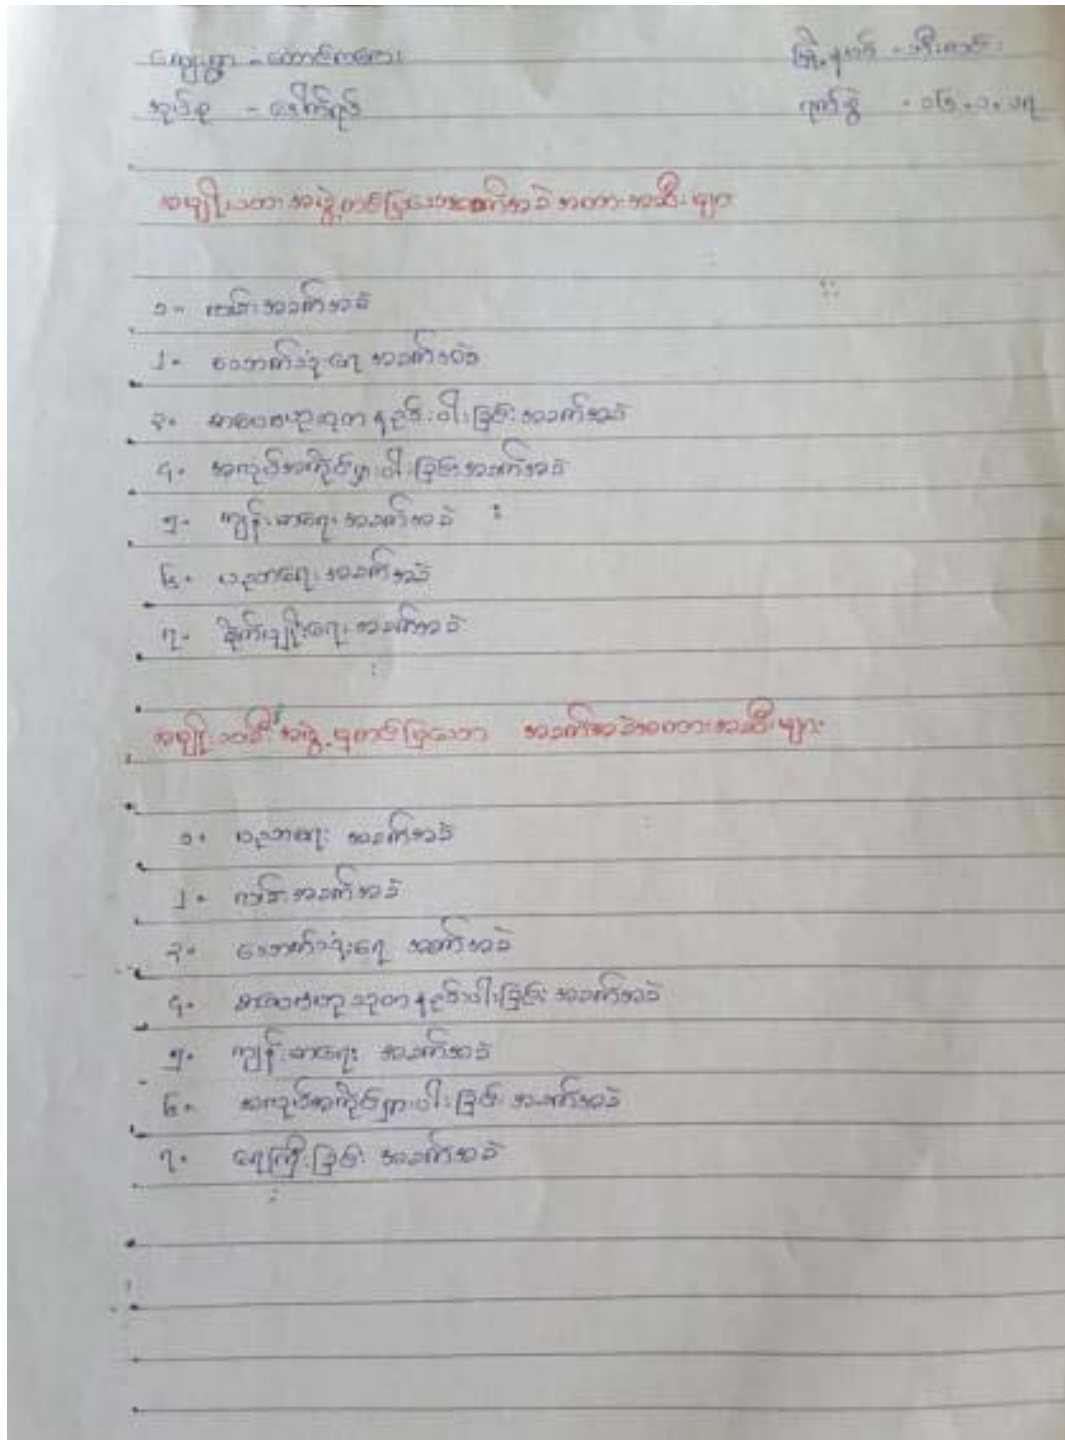 ကျေးရွာ - တောင်ကလေး
မြို့နယ် - သီးကုန်း
အုပ်စု - ဒေါက်ရပ်
ရက်စွဲ -
အမျိုးသားအဖွဲ့တင်ပြသောအခက်အခဲအတားအဆီးများ
၁။ လမ်းအခက်အခဲ
၂။ သောက်သုံးရေ အခက်အခဲ
၃။ စာပေဗဟုသုတနည်းပါးခြင်းအခက်အခဲ
၄။ အလုပ်အကိုင်ရှားပါးခြင်းအခက်အခဲ
၅။ ကျန်းမာရေးအခက်အခဲ
၆။ ပညာရေးအခက်အခဲ
၇။ စိုက်ပျိုးရေးအခက်အခဲ
အမျိုးသမီးအဖွဲ့မှတင်ပြသော အခက်အခဲအတားအဆီးများ
၁။ ပညာရေး အခက်အခဲ
၂။ လမ်းအခက်အခဲ
၃။ သောက်သုံးရေ အခက်အခဲ
၄။ စာပေဗဟုသုတနည်းပါးခြင်းအခက်အခဲ
၅။ ကျန်းမာရေး အခက်အခဲ
၆။ အလုပ်အကိုင်ရှားပါးခြင်းအခက်အခဲ
၇။ ရေကြီးခြင်း အခက်အခဲ